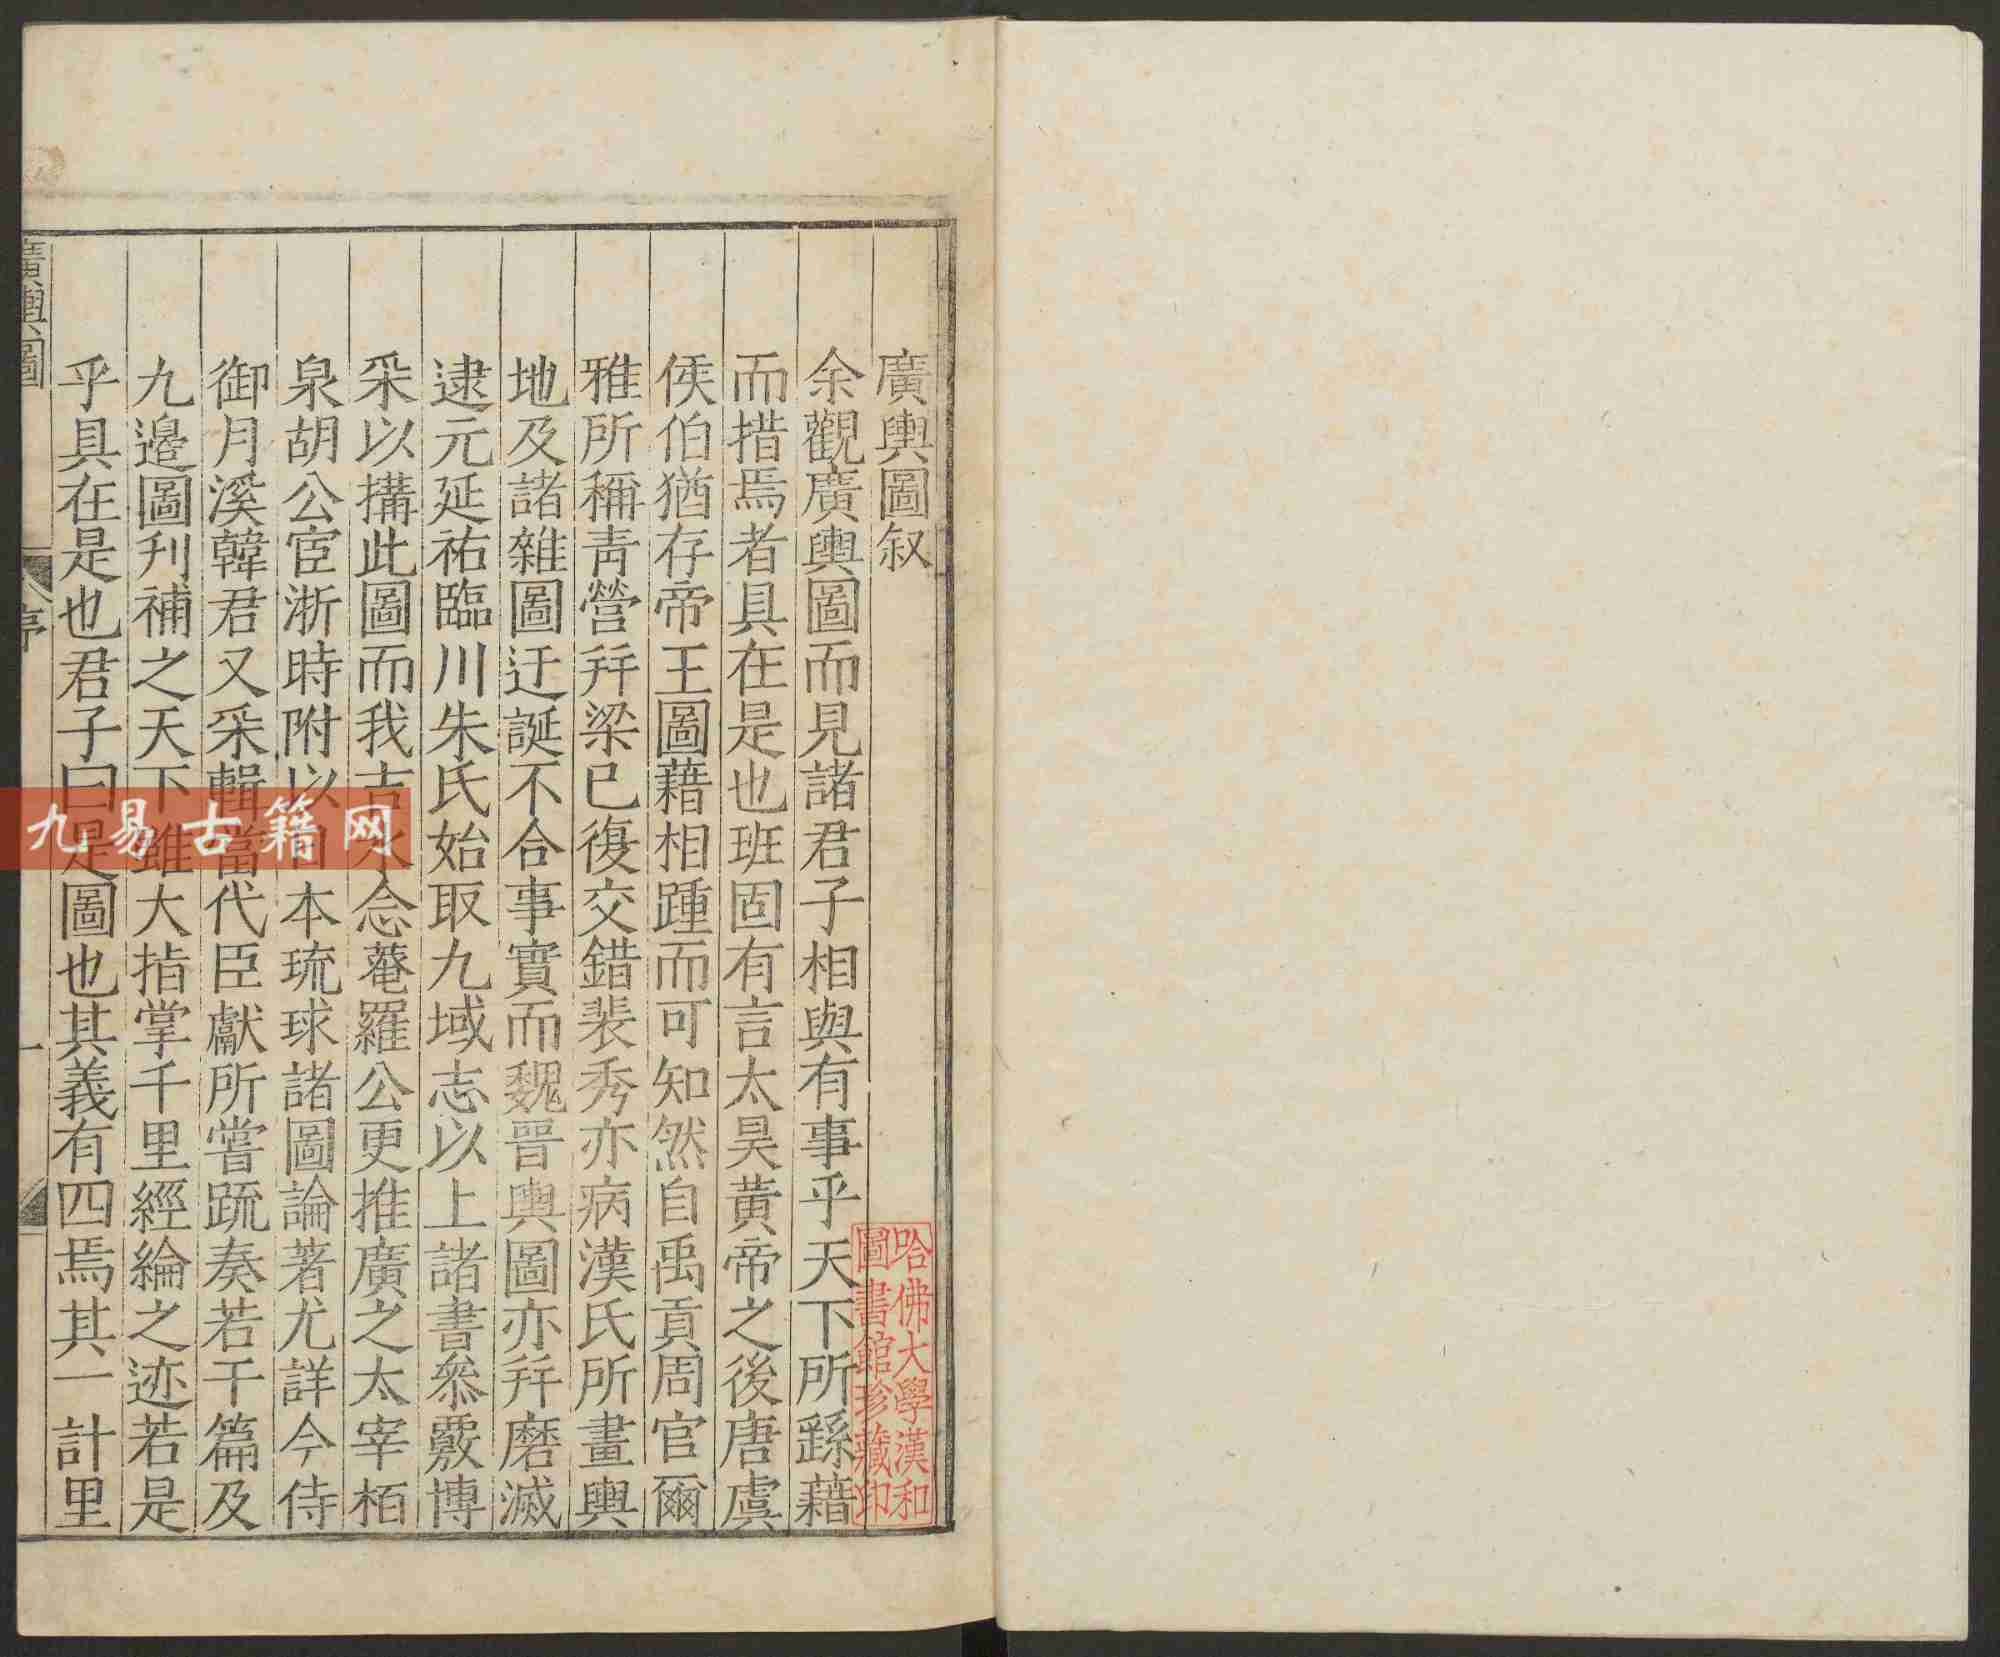 廣輿圖叙
余觀廣輿圖而見諸君子相與有事乎天下所繇藉
而措焉者具在是也班固有言太昊黃帝之後唐虞
侯伯猶存帝王圖藉相踵而可知然自禹貢周官爾
雅所稱靑營幷梁已復交錯裴秀亦病漢氏所畫輿
地及諸雜圖迂誕不合事實而魏晉輿圖亦幷磨滅
逮元延祐臨川朱氏始取九域志以上諸書叅覈博
采以搆此圖而我吉水念菴羅公更推廣之太宰栢
泉胡公宦浙時附以日本琉球諸圖論著尤詳今侍
御月溪韓君又采輯當代臣獻所嘗䟽奏若干篇及
九邊圖刋補之天下雖大指掌千里經綸之迹若是
乎具在是也君子曰是圖也其義有四焉其一計里
廣輿圖
序
一
哈佛大學漢和
圖書館珍藏印
九易古籍网